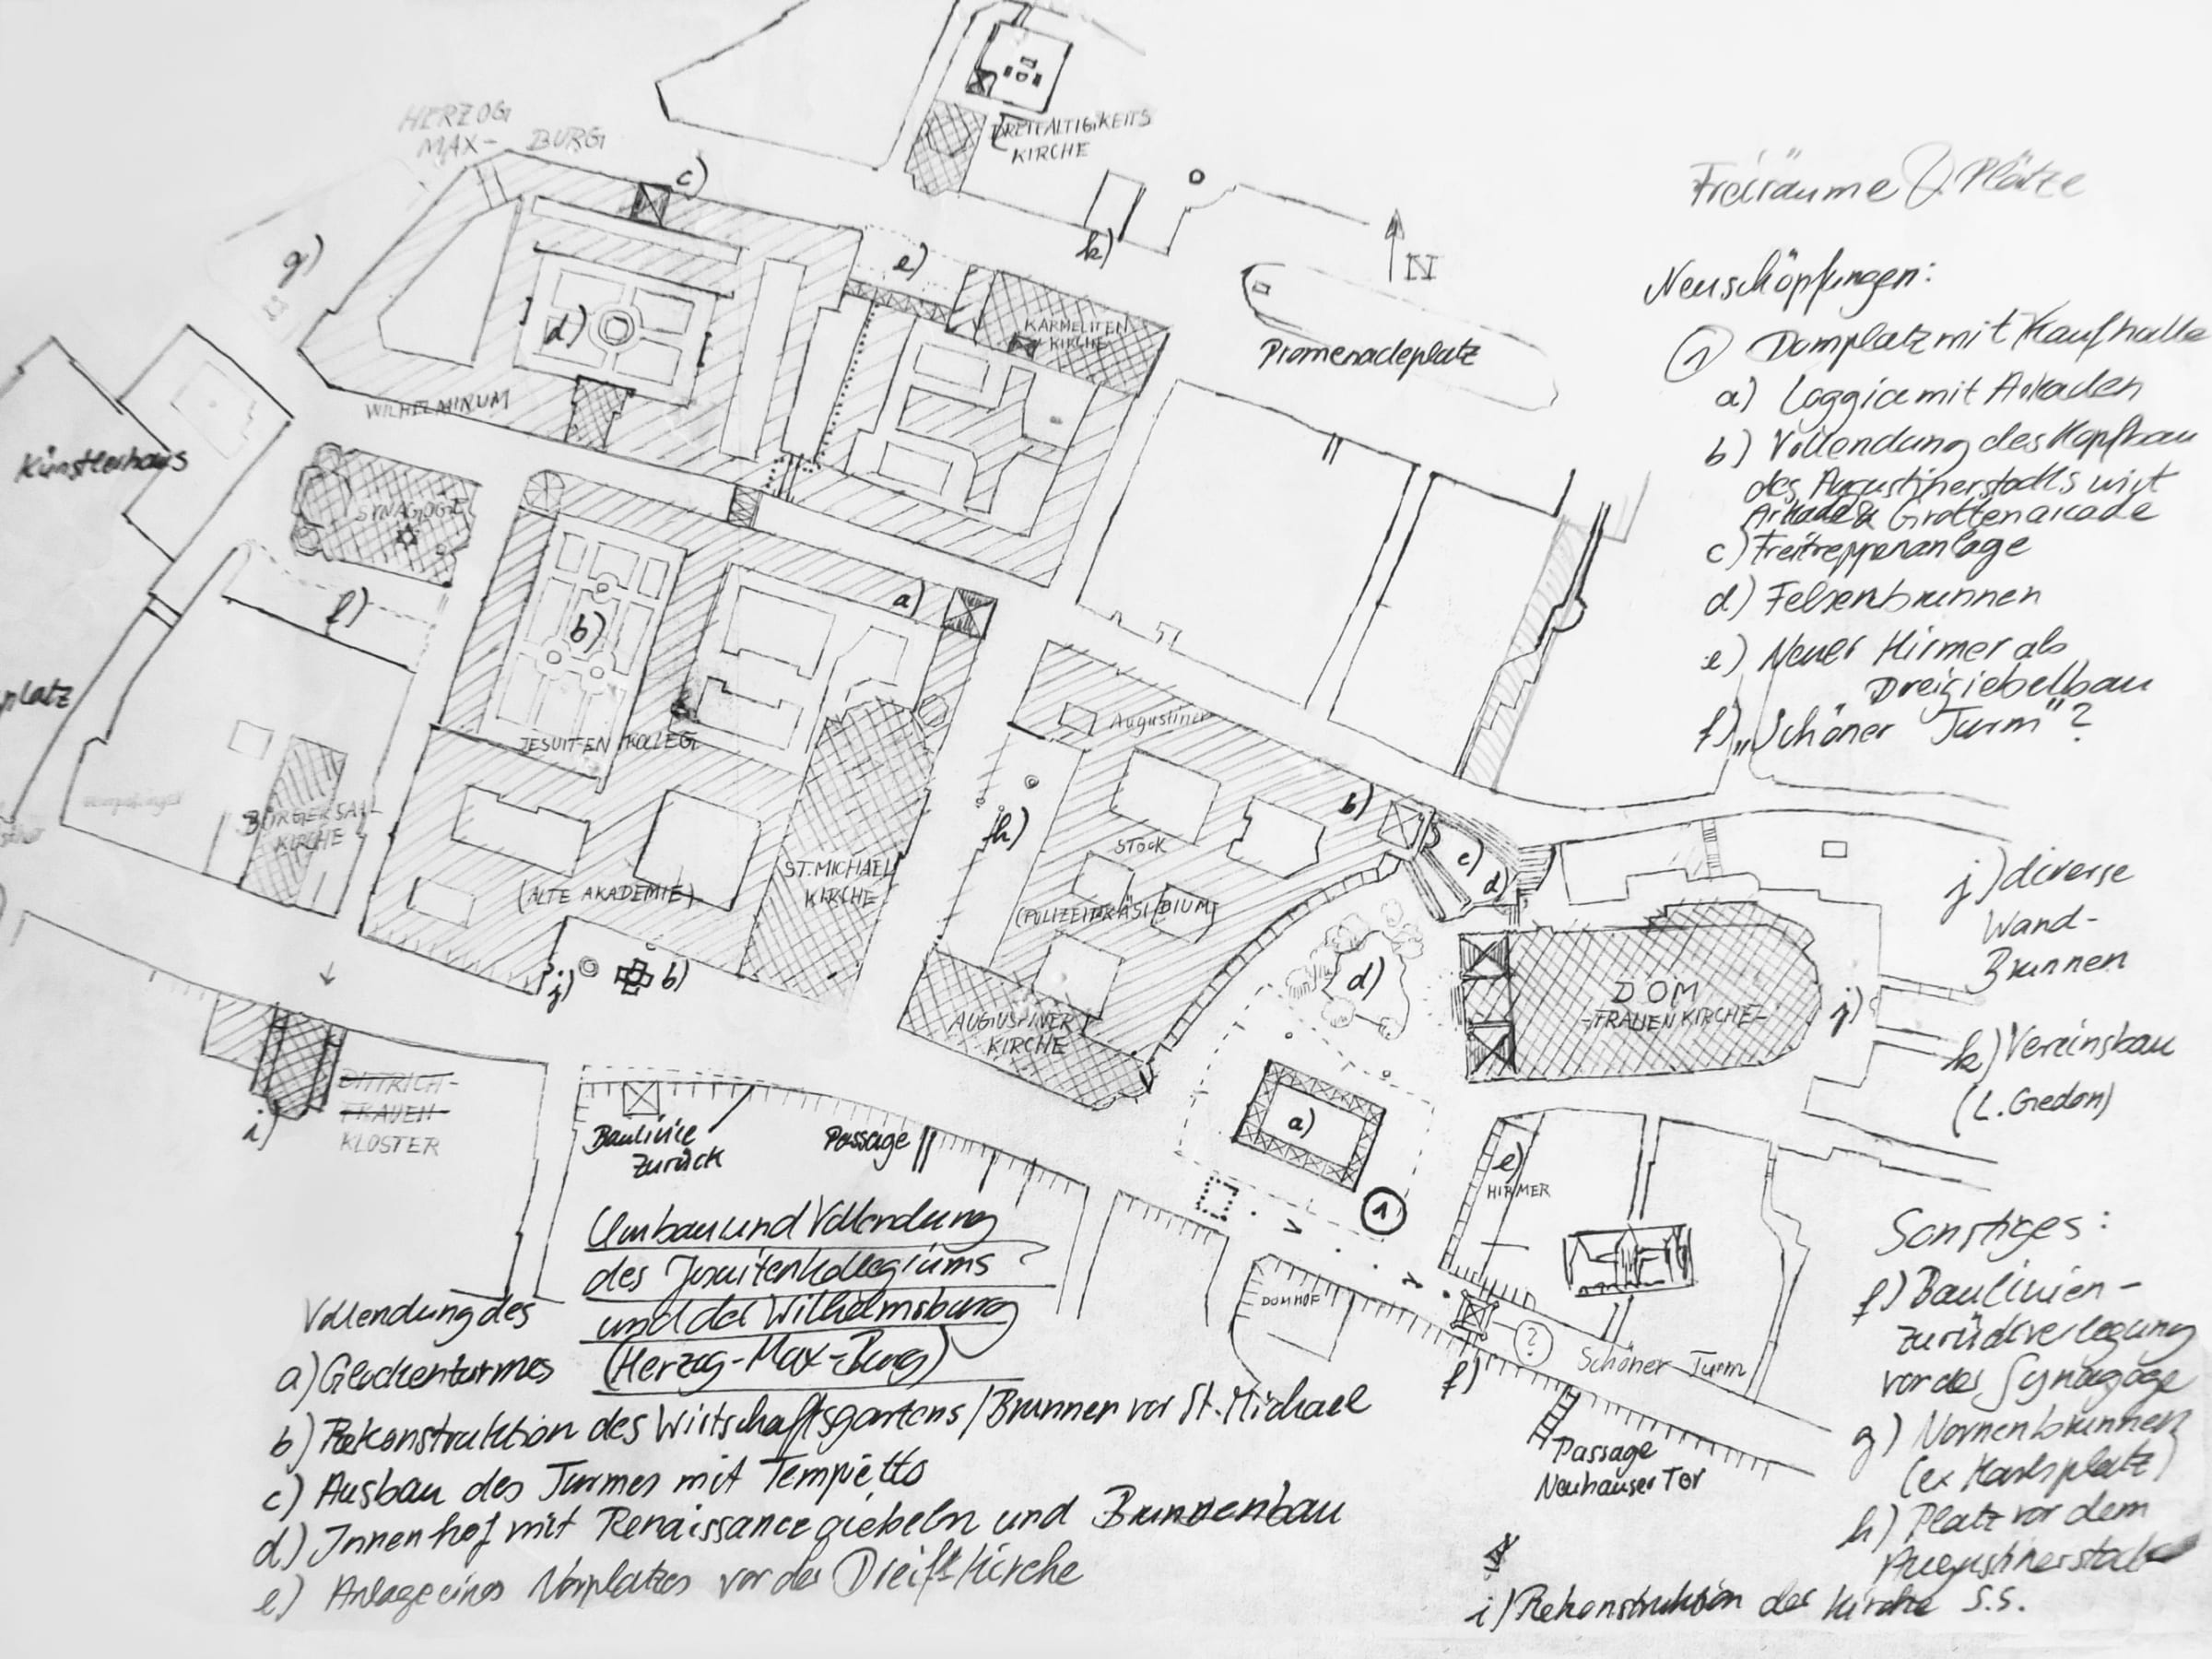 HERZOG
MAX- BURG
c)
DREIFALTIGKEITS
KIRCHE
k)
N
g)
e)
d)
KARMELITEN
KIRCHE
Promenadeplatz
WILHELMINUM
Künstlerhaus
SYNAGOGE
f)
a)
b)
platz
JESUITEN KOLLEG
Augustiner
h)
b)
Stock
c)
d)
BÜRGERSAAL
KIRCHE
(ALTE AKADEMIE)
ST. MICHAEL
KIRCHE
(POLIZEIPRÄSIDIUM)
j)
b)
d)
DOM
-FRAUENKIRCHE-
j)
AUGUSTINER
KIRCHE
i)
DITTRICH-
FRAUEN
KLOSTER
Baulinie
zurück
Passage
a)
e)
HIRMER
1
DOMHOF
f)
?
Schöner Turm
Passage
Neuhauser Tor
Freiräume & Plätze
Neuschöpfungen:
1 Domplatz mit Kaufhalle
a) Loggia mit Arkaden
b) Vollendung des Kopfbau
des Augustinerstocks mit
Arkade & Grottenarcade
c) Freitreppenanlage
d) Felsenbrunnen
e) Neuer Hirmer als
Dreigiebelbau
f) „Schöner Turm"?
j) diverse
Wand-
Brunnen
k) Vereinsbau
(L. Gedon)
Sonstiges:
f) Baulinien-
zurückverlegung
vor der Synagoge
g) Nornenbrunnen
(ex Karlsplatz)
h) Platz vor dem
Augustinerstock
i) Rekonstruktion der Kirche S.S.
Umbau und Vollendung
des Jesuitenkollegiums
und der Wilhelmsburg
(Herzog-Max-Burg)
Vollendung des
a) Glockenturmes
b) Rekonstruktion des Wirtschaftsgartens / Brunnen vor St. Michael
c) Ausbau des Turmes mit Tempietto
d) Innenhof mit Renaissancegiebeln und Brunnenbau
e) Anlage eines Vorplatzes vor der Dreif. Kirche